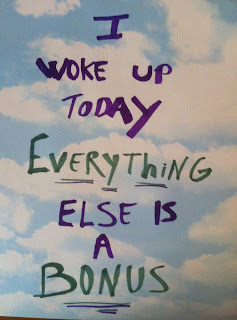 I
WOKE UP
TODAY
EVERYTHiNG
ELSE IS
A
BONUS